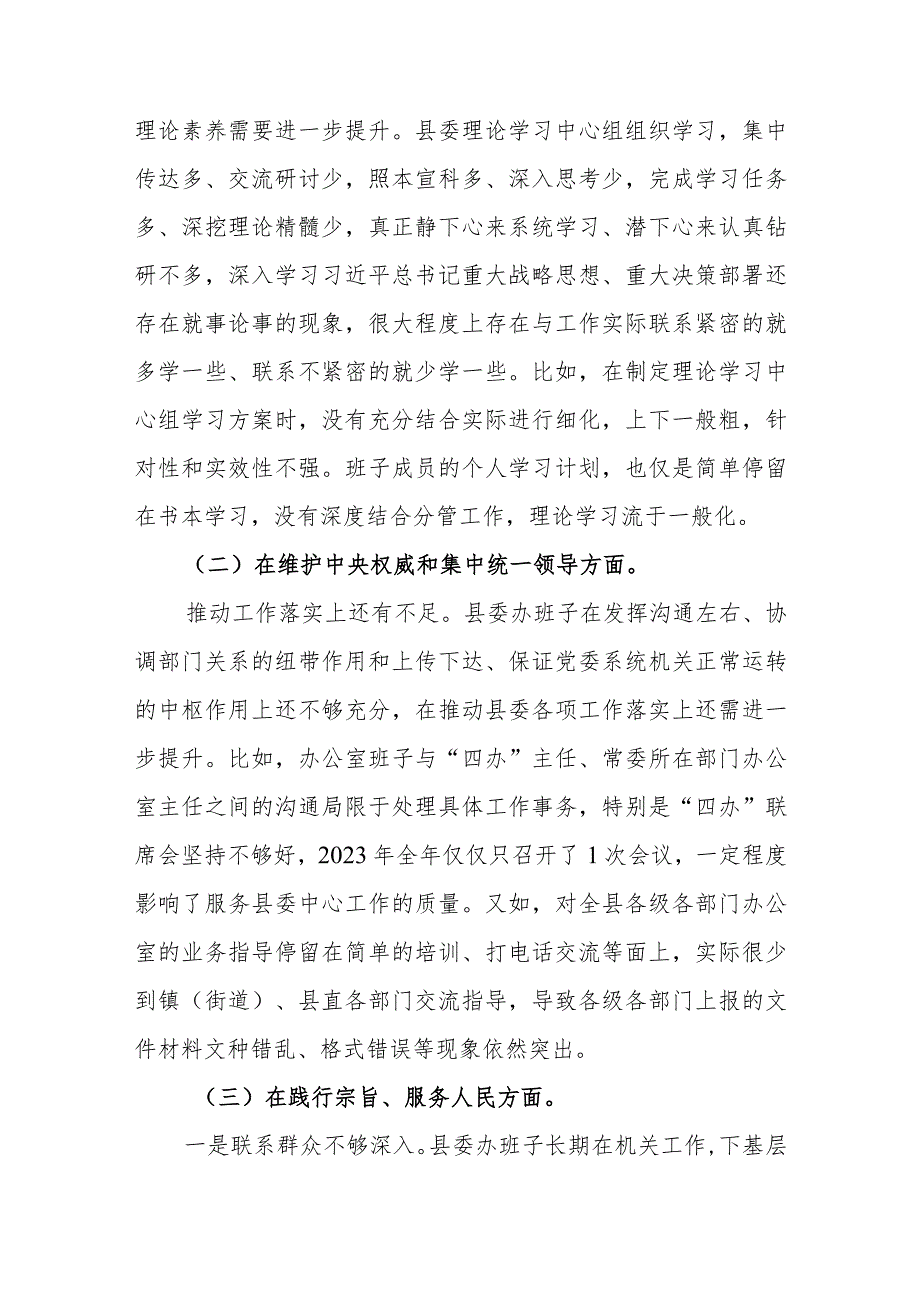 理论素养需要进一步提升。县委理论学习中心组组织学习，集中
传达多、交流研讨少，照本宣科多、深入思考少，完成学习任务
多、深挖理论精髓少，真正静下心来系统学习、潜下心来认真钻
研不多，深入学习习近平总书记重大战略思想、重大决策部署还
存在就事论事的现象，很大程度上存在与工作实际联系紧密的就
多学一些、联系不紧密的就少学一些。比如，在制定理论学习中
心组学习方案时，没有充分结合实际进行细化，上下一般粗，针
对性和实效性不强。班子成员的个人学习计划，也仅是简单停留
在书本学习，没有深度结合分管工作，理论学习流于一般化。
（二）在维护中央权威和集中统一领导方面。
推动工作落实上还有不足。县委办班子在发挥沟通左右、协
调部门关系的纽带作用和上传下达、保证党委系统机关正常运转
的中枢作用上还不够充分，在推动县委各项工作落实上还需进一
步提升。比如，办公室班子与“四办”主任、常委所在部门办公
室主任之间的沟通局限于处理具体工作事务，特别是“四办”联
席会坚持不够好，2023年全年仅仅只召开了1次会议，一定程度
影响了服务县委中心工作的质量。又如，对全县各级各部门办公
室的业务指导停留在简单的培训、打电话交流等面上，实际很少
到镇（街道）、县直各部门交流指导，导致各级各部门上报的文
件材料文种错乱、格式错误等现象依然突出。
（三）在践行宗旨、服务人民方面。
一是联系群众不够深入。县委办班子长期在机关工作,下基层